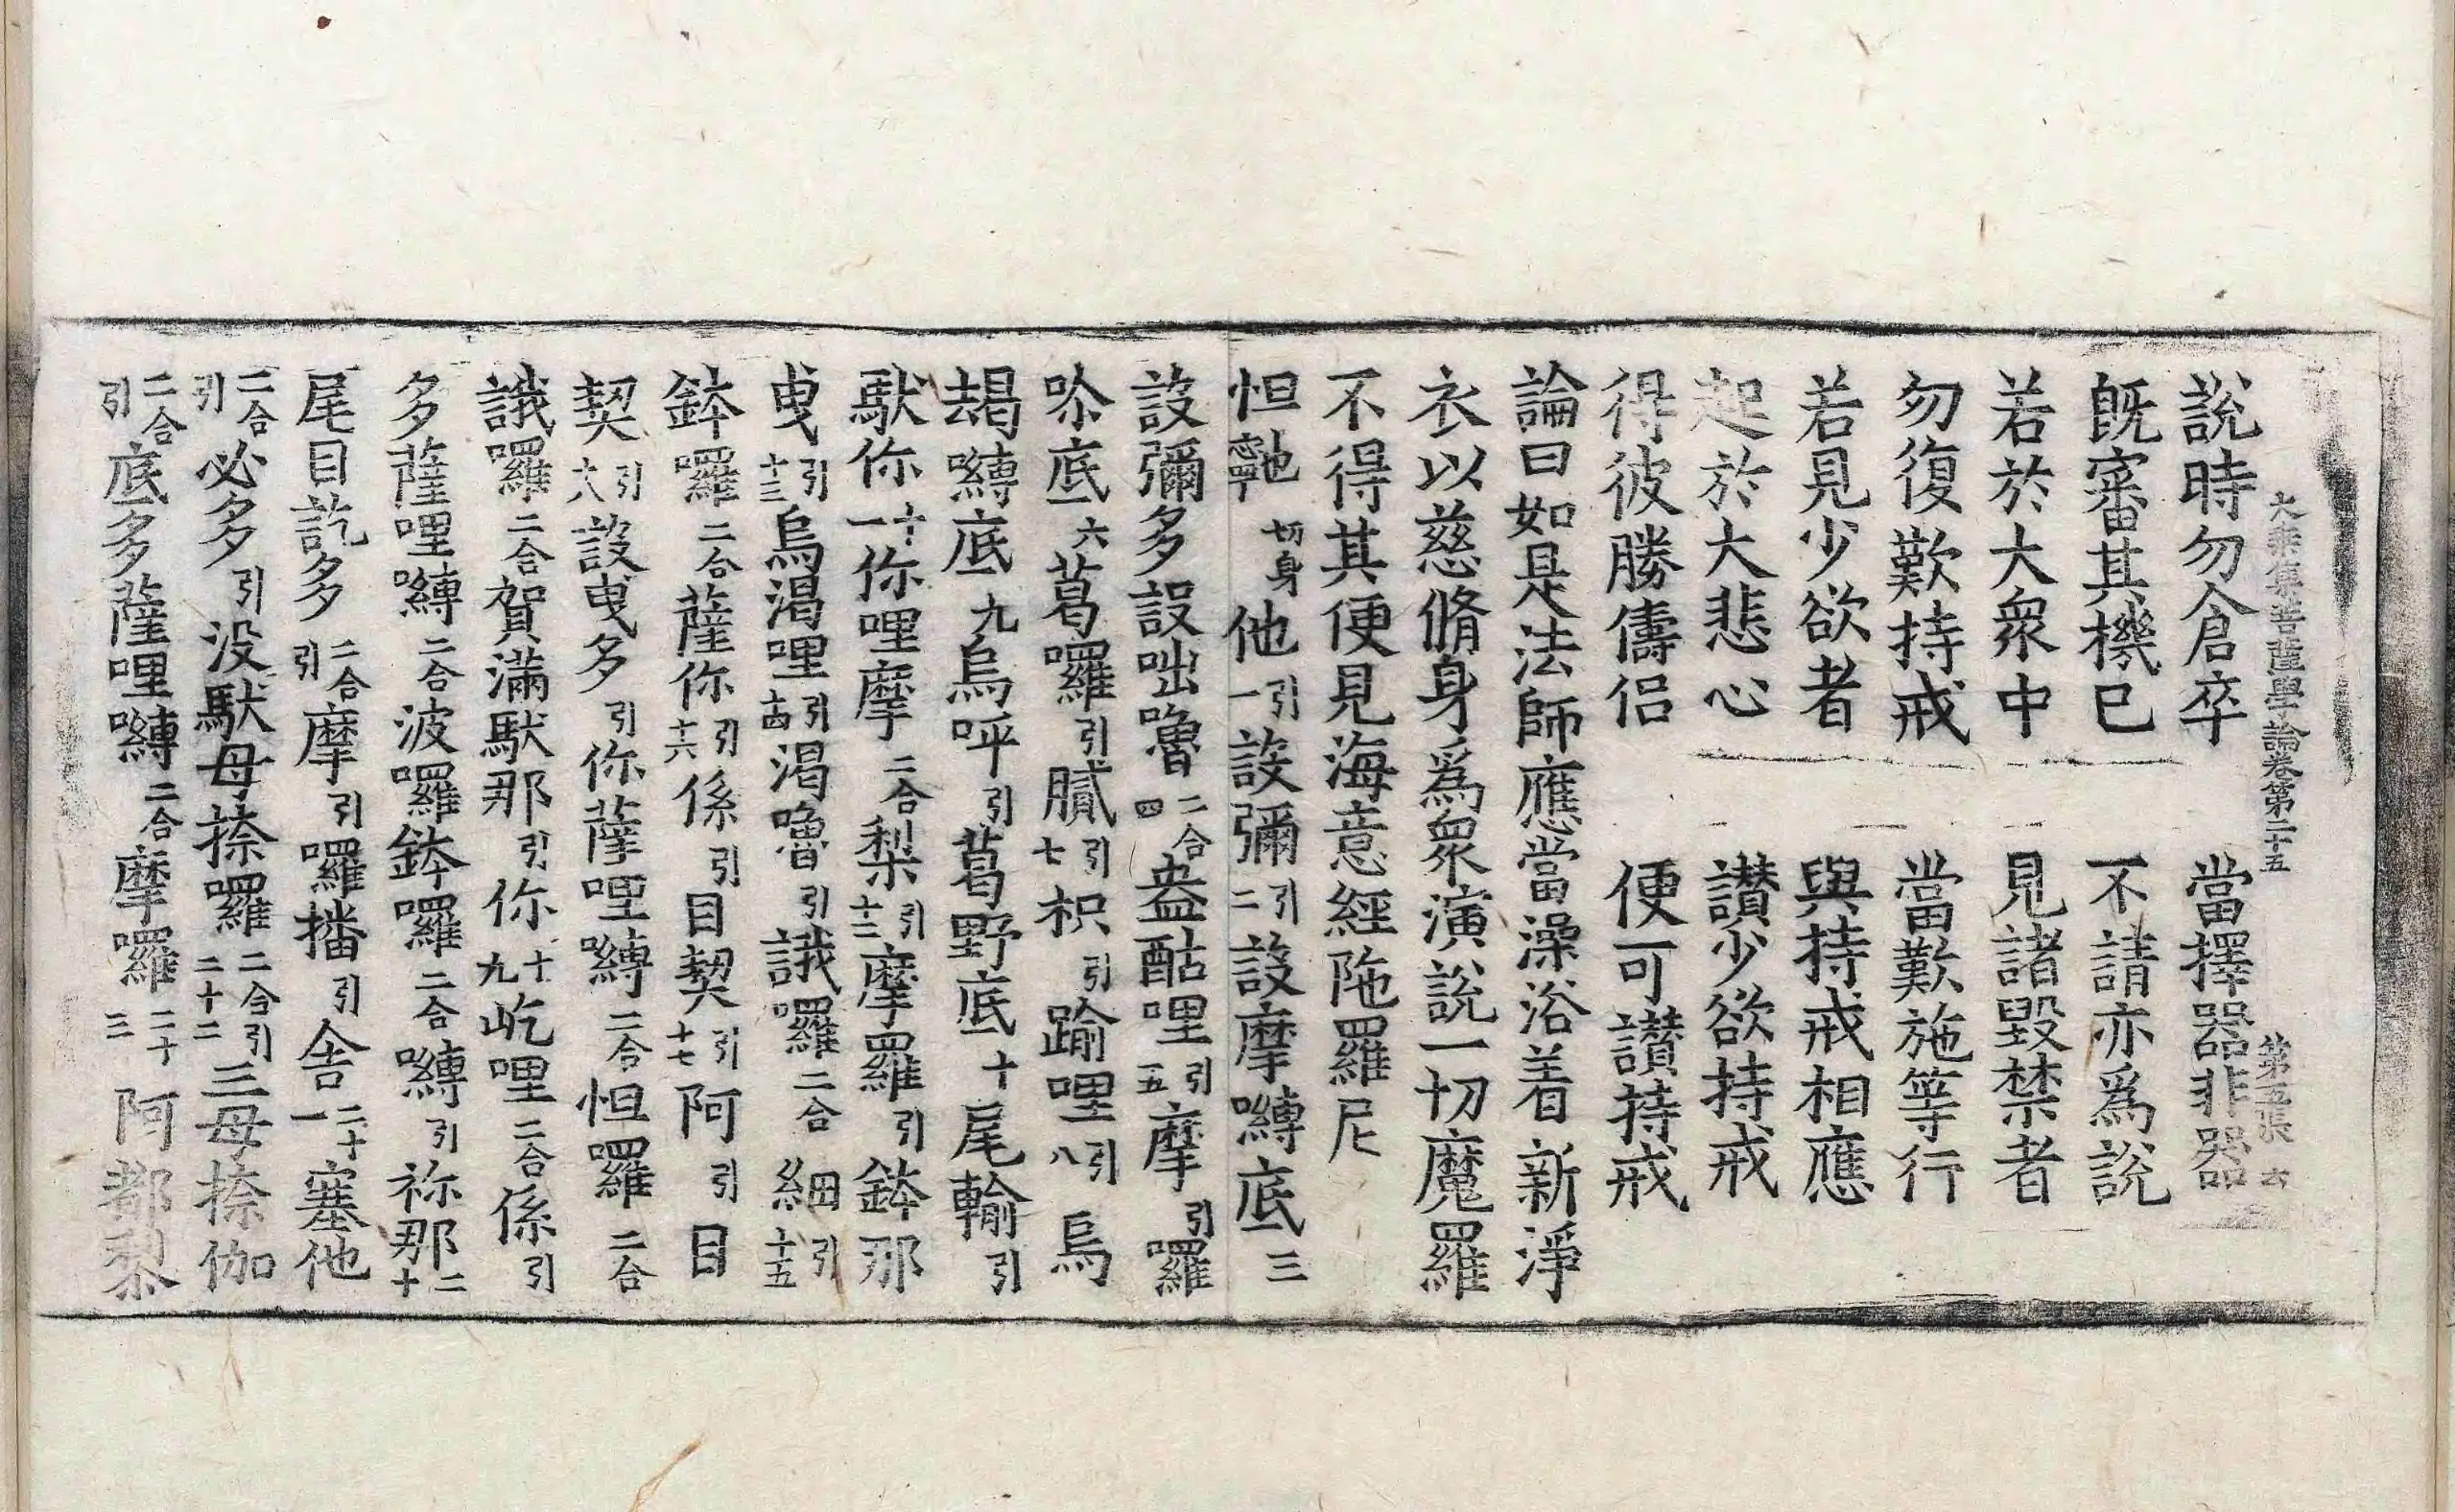 大乘集菩薩學論卷第二十五 第五張 云
說時勿倉卒 當擇器非器
旣審其機已 不請亦爲說
若於大衆中 見諸毀禁者
勿復歎持戒 當歎施等行
若見少欲者 與持戒相應
起於大悲心 讃少欲持戒
得彼勝儔侣 便可讃持戒
論曰如是法師應當澡浴着新淨
衣以慈脩身爲衆演說一切魔羅
不得其便見海意經陁羅尼
怛切身他引一設彌引二設摩嚩底三
設彌多設咄嚕二合四盎酤哩引五摩引囉
㖮底六葛囉引膩引七枳引踰哩引八烏
朅嚩底九烏呼引葛野底十尾輸引
馱你十一你哩摩二合梨引十二摩羅引鉢那
曳引十三烏渴哩引十四渴嚕引誐囉二合細引十五
鉢囉二合薩你引十六係引目契引十七阿引目
契引十八設曵多引你薩哩嚩二合怛囉二合
誐囉二合賀滿馱那引你十九屹哩二合係引
多薩哩嚩二合波囉鉢囉二合嚩引祢那二十
尾目訖多二合引摩引囉播引舍二十一塞他
二合引必多引没馱母捺囉二合引二十二三母捺伽
二合引底多薩哩嚩二合摩囉二十三阿都黎